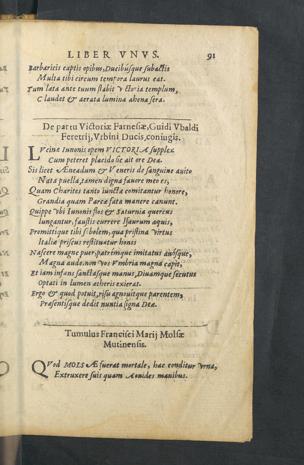 LIBER VNVS. 91
Barbaricis captis opibus, Ducibúsque subactis
Multa tibi circum tempora laurus eat.
Tum lata ante tuum stabit victoria templum,
Claudet & aerata lumina ahena sera.
De partu Victoriæ Farnesiæ, Guidi Vbaldi
Feretrij, Vrbini Ducis, coniugis.
LVcinæ Iunonis opem VICTORIA supplex
Cum peteret placido sic ait ore Dea.
Sis licet Æneadum & Veneris de sanguine auito
Nata puella, tamen digna fauere mco
Quam Charites tanto iunctæ comitantur honore,
Grandia quam Parcæ fata manere canunt.
Quippe vbi Iunonis flos & Saturnia quercus
Iungantur, faustis currere
Promittique tibi sobolem, qua pristina virtus
Italiæ priscus restituatur honos
Nascere magne puer patrémque imitatus auósque,
Magna Vmbria magna capit,
Et iam infans sanctásque manus, Diuamque secutus
Optati in lumen aetheris exierat.
Ergo & quod potuit, risu agnoscitque parentem,
Præsentisque dedit nuntia signa Deæ.
Tumulus Francisci Marij Molsæ
Mutinensis.
QVod MOLSÆ fuerat mortale, hac conditur vrna,
Extruxere suis quam Aonides manibus.